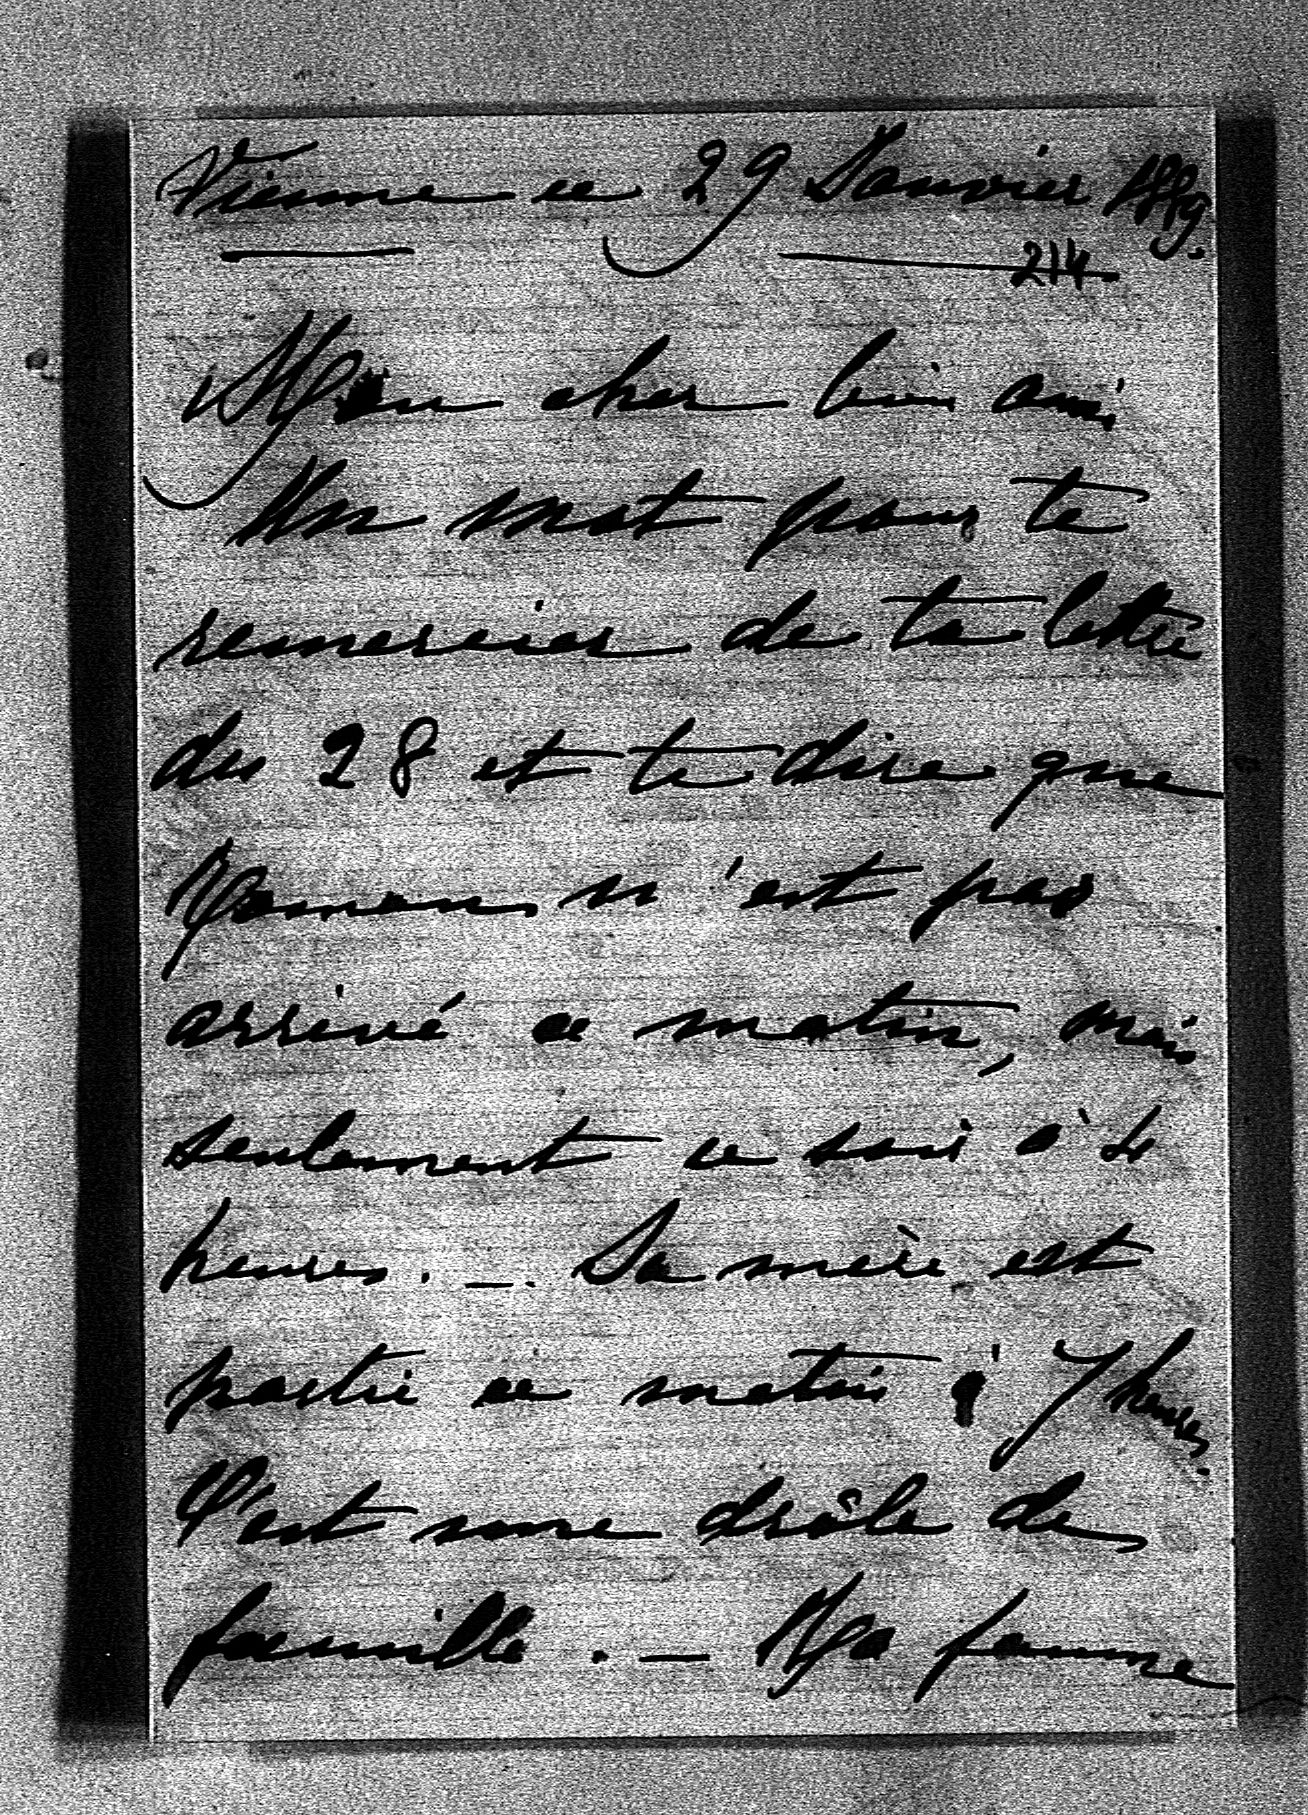 Vienne ce 29 Janvier 1889.
214.
Mon cher bon ami
Un mot pour te
remercier de ta lettre
du 28 et te dire que
Roman n'est pas
arrivé ce matin, mais
seulement ce soir à 4
heures. — Sa mère est
partie ce matin à 7 heures.
C'est une drôle de
famille. — Ma femme